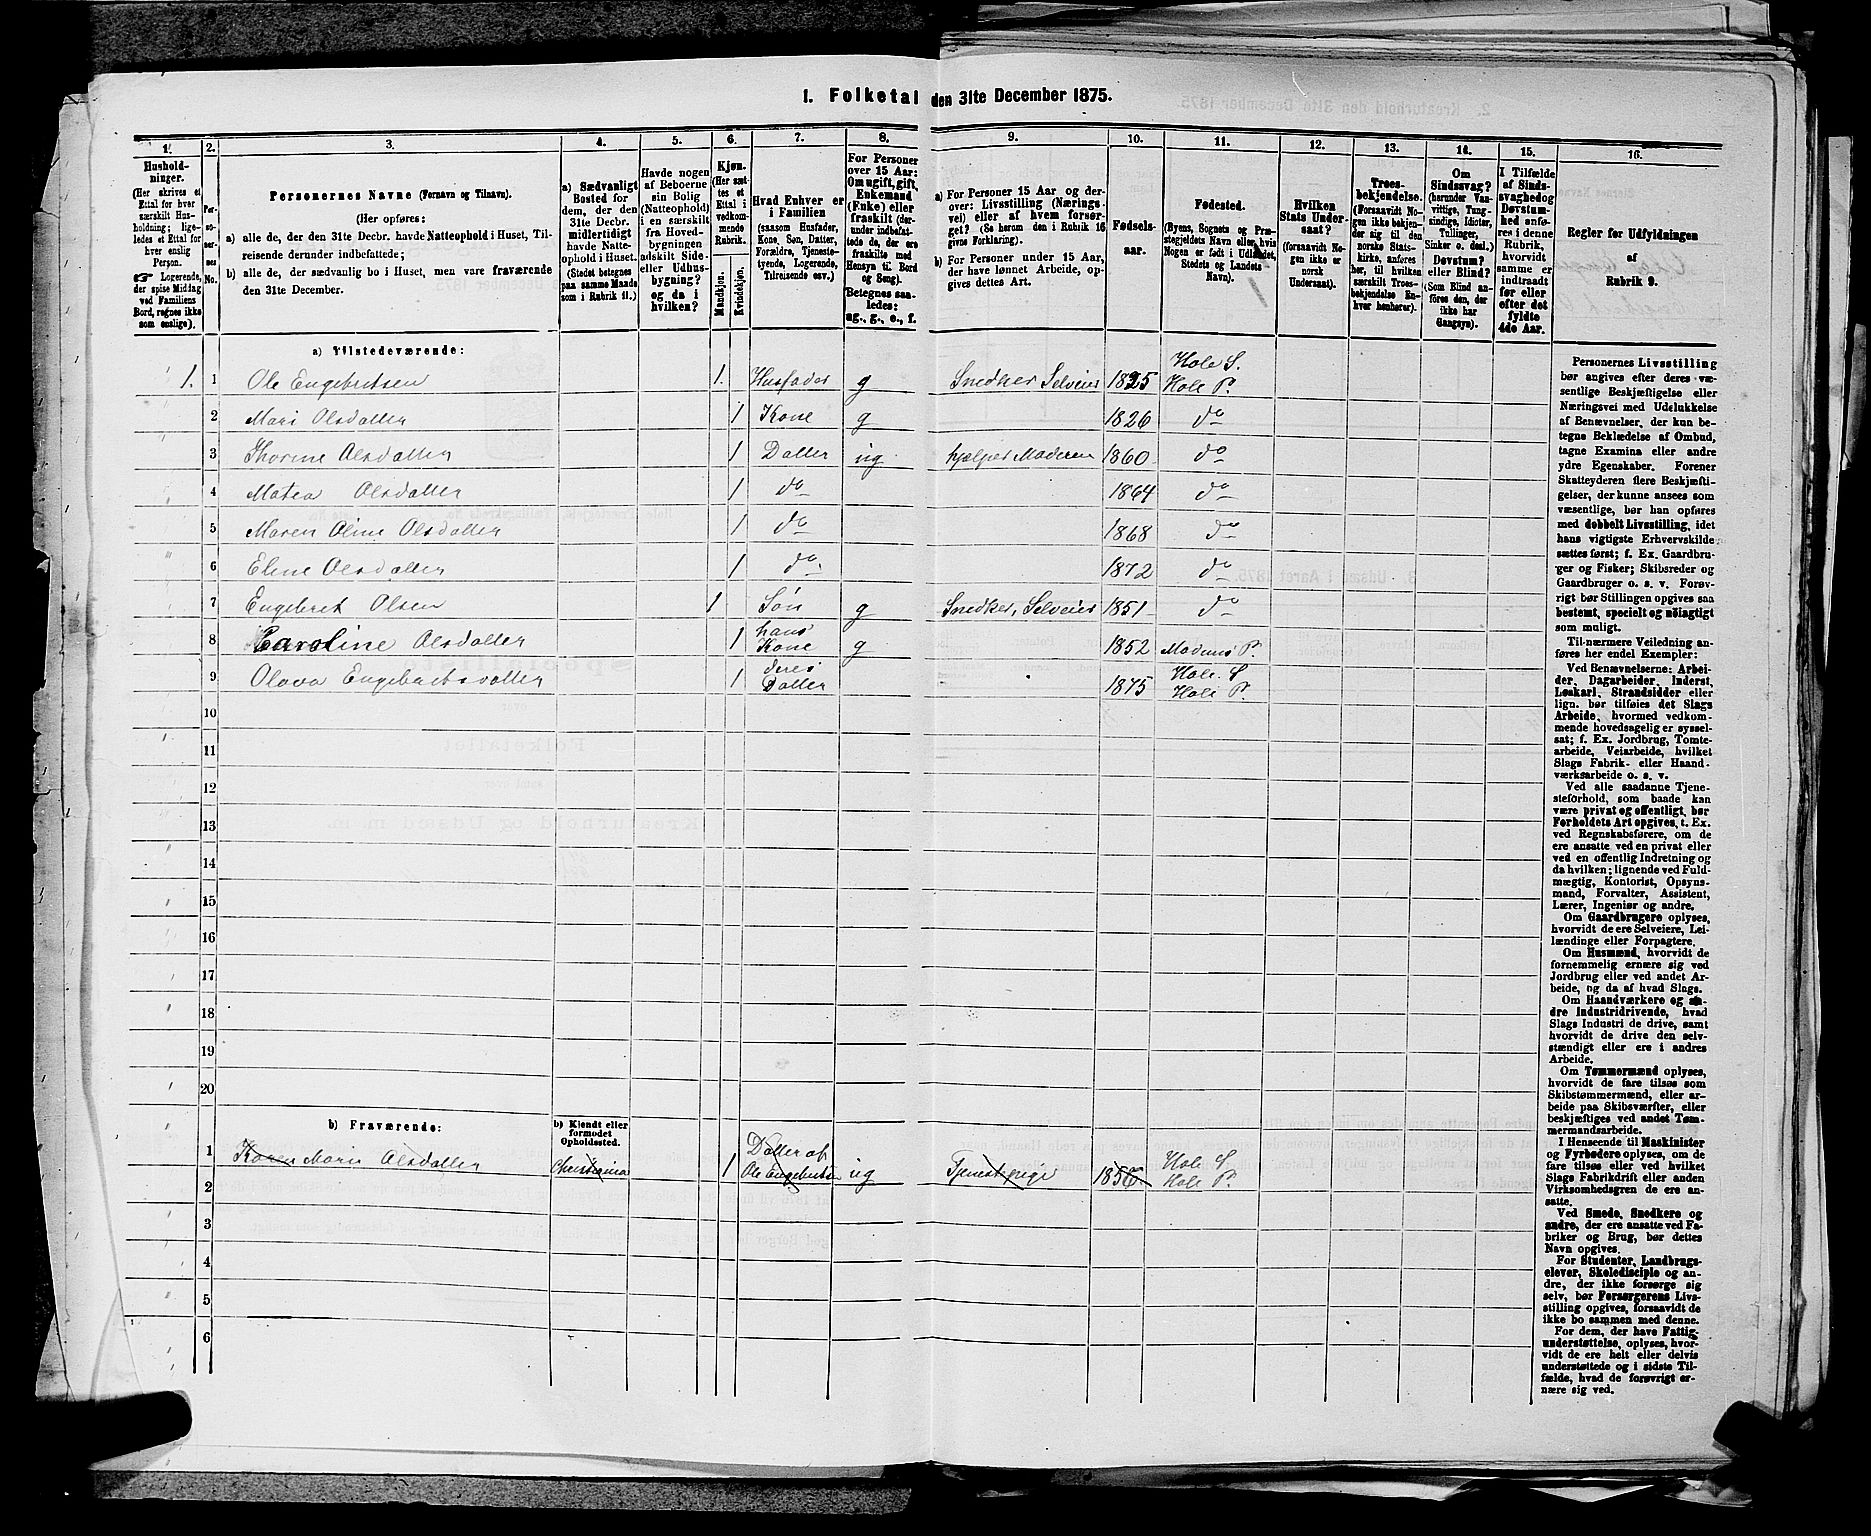 1. Folketal den 31te December 1875.
1.
Hushold-
ninger.
(Her skrives et
Ettal for hver
særskilt Hus-
holdning; lige-
ledes et Ettal for
hver enslig
Person.
☞ Logerende,
der spise Middag
ved Familiens
Bord, regnes ikke
som enslige).
2.
Per-
so-
ner-
nes
No.
3.
Personernes Navne (Fornavn og Tilnavn).
(Her opføres:
a) alle de, der den 31te Decbr. havde Natteophold i Huset, Til-
reisende derunder indbefattede;
b) alle de, der sædvanlig bo i Huset, men vare fraværende
den 31te December.
4.
a) Sædvanligt
Bosted for
dem, der den
31te Decbr.
midlertidigt
havde Natte-
ophold i Huset.
(Stedet betegnes
paa samme Maade
som i Rubrik 11.)
5.
Havde nogen
af Beboerne
sin Bolig
(Natteophold)
i en særskilt
fra Hoved-
bygningen
adskilt Side-
eller Udhus-
bygning?
og da i
hvilken?
6.
Kjøn.
(Her sæt-
tes et
Ettal i
vedkom-
mende
Rubrik.
Mandkjøn.
Kvindekjøn.
7.
Hvad Enhver er
i Familien
(saasom Husfader,
Kone, Søn, Datter,
Forældre, Tjeneste-
tyende, Logerende,
Tilreisende osv.)
8.
For Personer
over 15 Aar:
Om ugift, gift,
Enkemand
(Enke) eller
fraskilt (der-
under indbefat-
tede de, der ere
fraskilte med
Hensyn til Bord
og Seng).
Betegnes saa-
ledes:
ug., g., e., f.
9.
a) For Personer 15 Aar og der-
over: Livsstilling (Nærings-
vei) eller af hvem forsør-
get? (Se herom den i Rubrik 16
givne Forklaring).
b) For Personer under 15 Aar,
der have lønnet Arbeide, op-
gives dettes Art.
10.
Fødsels-
aar.
11.
Fødested.
(Byens, Sognets og Præ-
stegjeldets Navn eller, hvis
Nogen er født i Udlandet,
Stedets og Landets
Navn).
12.
Hvilken
Stats Under-
saat?
(forsaavidt No-
gen ikke er
norsk
Undersaat).
13.
Troes-
bekjendelse.
(Forsaavidt No-
gen ikke bekjen-
der sig til den
norske Stats-
kirke, anføres
her, til hvilken
særskilt Troes-
bekjendelse En-
hver henhører).
14.
Om
Sindssvag?
(herunder Van-
vittige, Tung-
sindige, Idioter,
Tullinger,
Sinker o. desl.)
Døvstum?
eller Blind?
(Som Blind an-
føres den, der
ikke har
Gangsyn).
15.
I Tilfælde
af Sinds-
svaghed og
Døvstum-
hed anfø-
res i denne
Rubrik,
hvorvidt
samme er
indtraadt
før eller
efter det
fyldte
4de Aar.
16.
Regler for Udfyldningen
af
Rubrik 9.
a) Tilstedeværende:
1. 1 Ole Engebretsen 1. Husfader g Snedker Selveier 1825 Hole S. Hole P.
2 Mari Olsdatter 1 Kone g 1826 do
3 Thorine Olsdatter 1 Datter ug hjelper Moderen 1860 do
4 Matea Olsdatter 1 do 1864 do
5 Maren Oline Olsdatter 1 do 1868 do
6 Eline Olsdatter 1 do 1872 do
7 Engebret Olsen 1 Søn g Snedker, Selveier 1851 do
8 Caroline Olsdatter 1 hans Kone g 1852 Modums P.
9 Olava Engebretsdatter 1 deres Datter 1875 Hole S Hole P.
10
11
12
13
14
15
16
17
18
19
20
b) Fraværende:
b) Kjendt eller
formodet
Opholdssted.
1 Karen Marie Olsdatter Christiania 1 Datter af Ole Engebretsen ug Tjenestepige 1856 Hole S Hole P.
2
3
4
5
6
Personernes Livsstilling
bør angives efter deres væ-
sentlige Beskjæftigelse eller
Næringsvei med Udelukkelse
af Benævnelser, der kun be-
tegne Beklædelse af Ombud,
tagne Examina eller andre
ydre Egenskaber. Forener
Skatteyderen flere Beskjæfti-
gelser, der kunne ansees som
væsentlige, bør han opføres
med dobbelt Livsstilling, idet
hans vigtigste Erhvervskilde
sættes først; f. Ex. Gaardbru-
ger og Fisker; Skibsreder og
Gaardbruger o. s. v. Forøv-
rigt bør Stillingen opgives saa
bestemt, specielt og nøiagtigt
som muligt.
Til nærmere Veiledning an-
føres her endel Exempler:
Ved Benævnelserne: Arbei-
der, Dagarbeider, Inderst,
Løskarl, Strandsidder eller
lign. bør tilføies det Slags
Arbeide, hvormed vedkom-
mende hovedsagelig er syssel-
sat; f. Ex. Jordbrug, Tomte-
arbeide, Veiarbeide, hvilket
Slags Fabrik- eller Haand-
værksarbeide o. s. v.
Ved alle saadanne Tjene-
steforhold, som baade kan
være privat og offentligt, bør
Forholdets Art opgives, t. Ex.
ved Regnskabsførere, om de
ere ansatte ved en privat eller
ved en offentlig Indretning og
da hvilken; lignende ved Fuld-
mægtig, Kontorist, Opsyns-
mand, Forvalter, Assistent,
Lærer, Ingeniør og andre.
Om Gaardbrugere oplyses,
hvorvidt de ere Selveiere, Lei-
lændinge eller Forpagtere.
Om Husmænd, hvorvidt de
fornemmelig ernære sig ved
Jordbrug eller ved andet Ar-
beide, og da af hvad Slags.
Om Haandværkere og an-
dre Industridrivende, hvad
Slags Industri de drive, samt
hvorvidt de drive den selv-
stændigt eller ere i andres
Arbeide.
Om Tømmermænd oplyses,
hvorvidt de fare tilsøs som
Skibstømmermænd, eller ar-
beide paa Skibsværfter, eller
beskjæftiges ved andet Tøm-
mermandsarbeide.
I Henseende til Maskinister
og Fyrbødere oplyses, om de
fare tilsøs eller ved hvilket
Slags Fabrikdrift eller anden
Virksomhedsgren de ere an-
satte.
Ved Smede, Snedkere og
andre, der ere ansatte ved Fa-
briker og Brug, bør dettes
Navn opgives.
For Studenter, Landbrugs-
elever, Skoledisciple og an-
dre, der ikke forsørge sig
selv, bør Forsørgerens Livs-
stilling opgives, forsaavidt de
ikke bo sammen med denne.
For dem, der have Fattig-
understøttelse, oplyses, hvor-
vidt de ere helt eller delvis
understøttede og i sidste Til-
fælde, hvad de forøvrigt er-
nære sig ved.